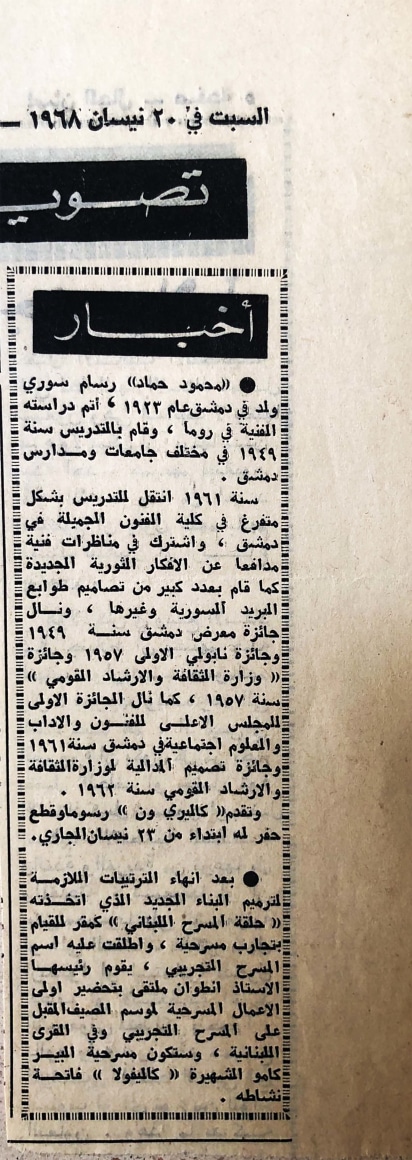 السبت في ٢٠ نيسان ١٩٦٨ —
تصوي
أخبار
● «محمود حماد» رسام سوري
ولد في دمشق عام ١٩٢٣ ، اتم دراسته
الفنية في روما ، وقام بالتدريس سنة
١٩٤٩ في مختلف جامعات ومدارس
دمشق .
سنة ١٩٦١ انتقل للتدريس بشكل
متفرغ في كلية الفنون الجميلة في
دمشق ، واشترك في مناظرات فنية
مدافعا عن الافكار الثورية الجديدة
كما قام بعدد كبير من تصاميم طوابع
البريد السورية وغيرها ، ونال
جائزة معرض دمشق سنة ١٩٤٩
وجائزة نابولي الاولى ١٩٥٧ وجائزة
« وزارة الثقافة والارشاد القومي »
سنة ١٩٥٧ ، كما نال الجائزة الاولى
للمجلس الاعلى للفنون والاداب
والعلوم اجتماعية في دمشق سنة ١٩٦١
وجائزة تصميم الدالية لوزارة الثقافة
والارشاد القومي سنة ١٩٦٢ .
وتقدم « كاليري ون » رسوما وقطع
حفر له ابتداء من ٢٣ نيسان الجاري.
● بعد انهاء الترتيبات اللازمة
لترميم البناء الجديد الذي اتخذته
« حلقة المسرح اللبناني » كمقر للقيام
بتجارب مسرحية ، واطلقت عليه اسم
المسرح التجريبي ، يقوم رئيسها
الاستاذ انطوان ملتقى بتحضير اولى
الاعمال المسرحية لموسم الصيف المقبل
على المسرح التجريبي وفي القرى
اللبنانية ، وستكون مسرحية البير
كامو الشهيرة « كاليفولا » فاتحة
نشاطه .